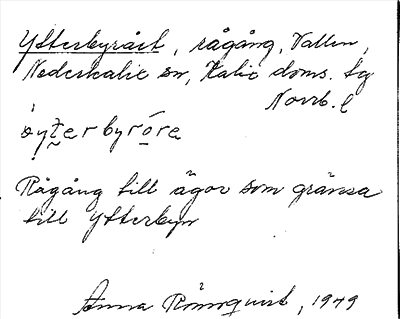 Ytterbyrået, rågång, Vallen,
Nederkalix sn, Kalix doms. tg
Norrb. l
yterbyróre
Rågång till ägor som gränsa
till Ytterbyn
Anna Rönnquist, 1949